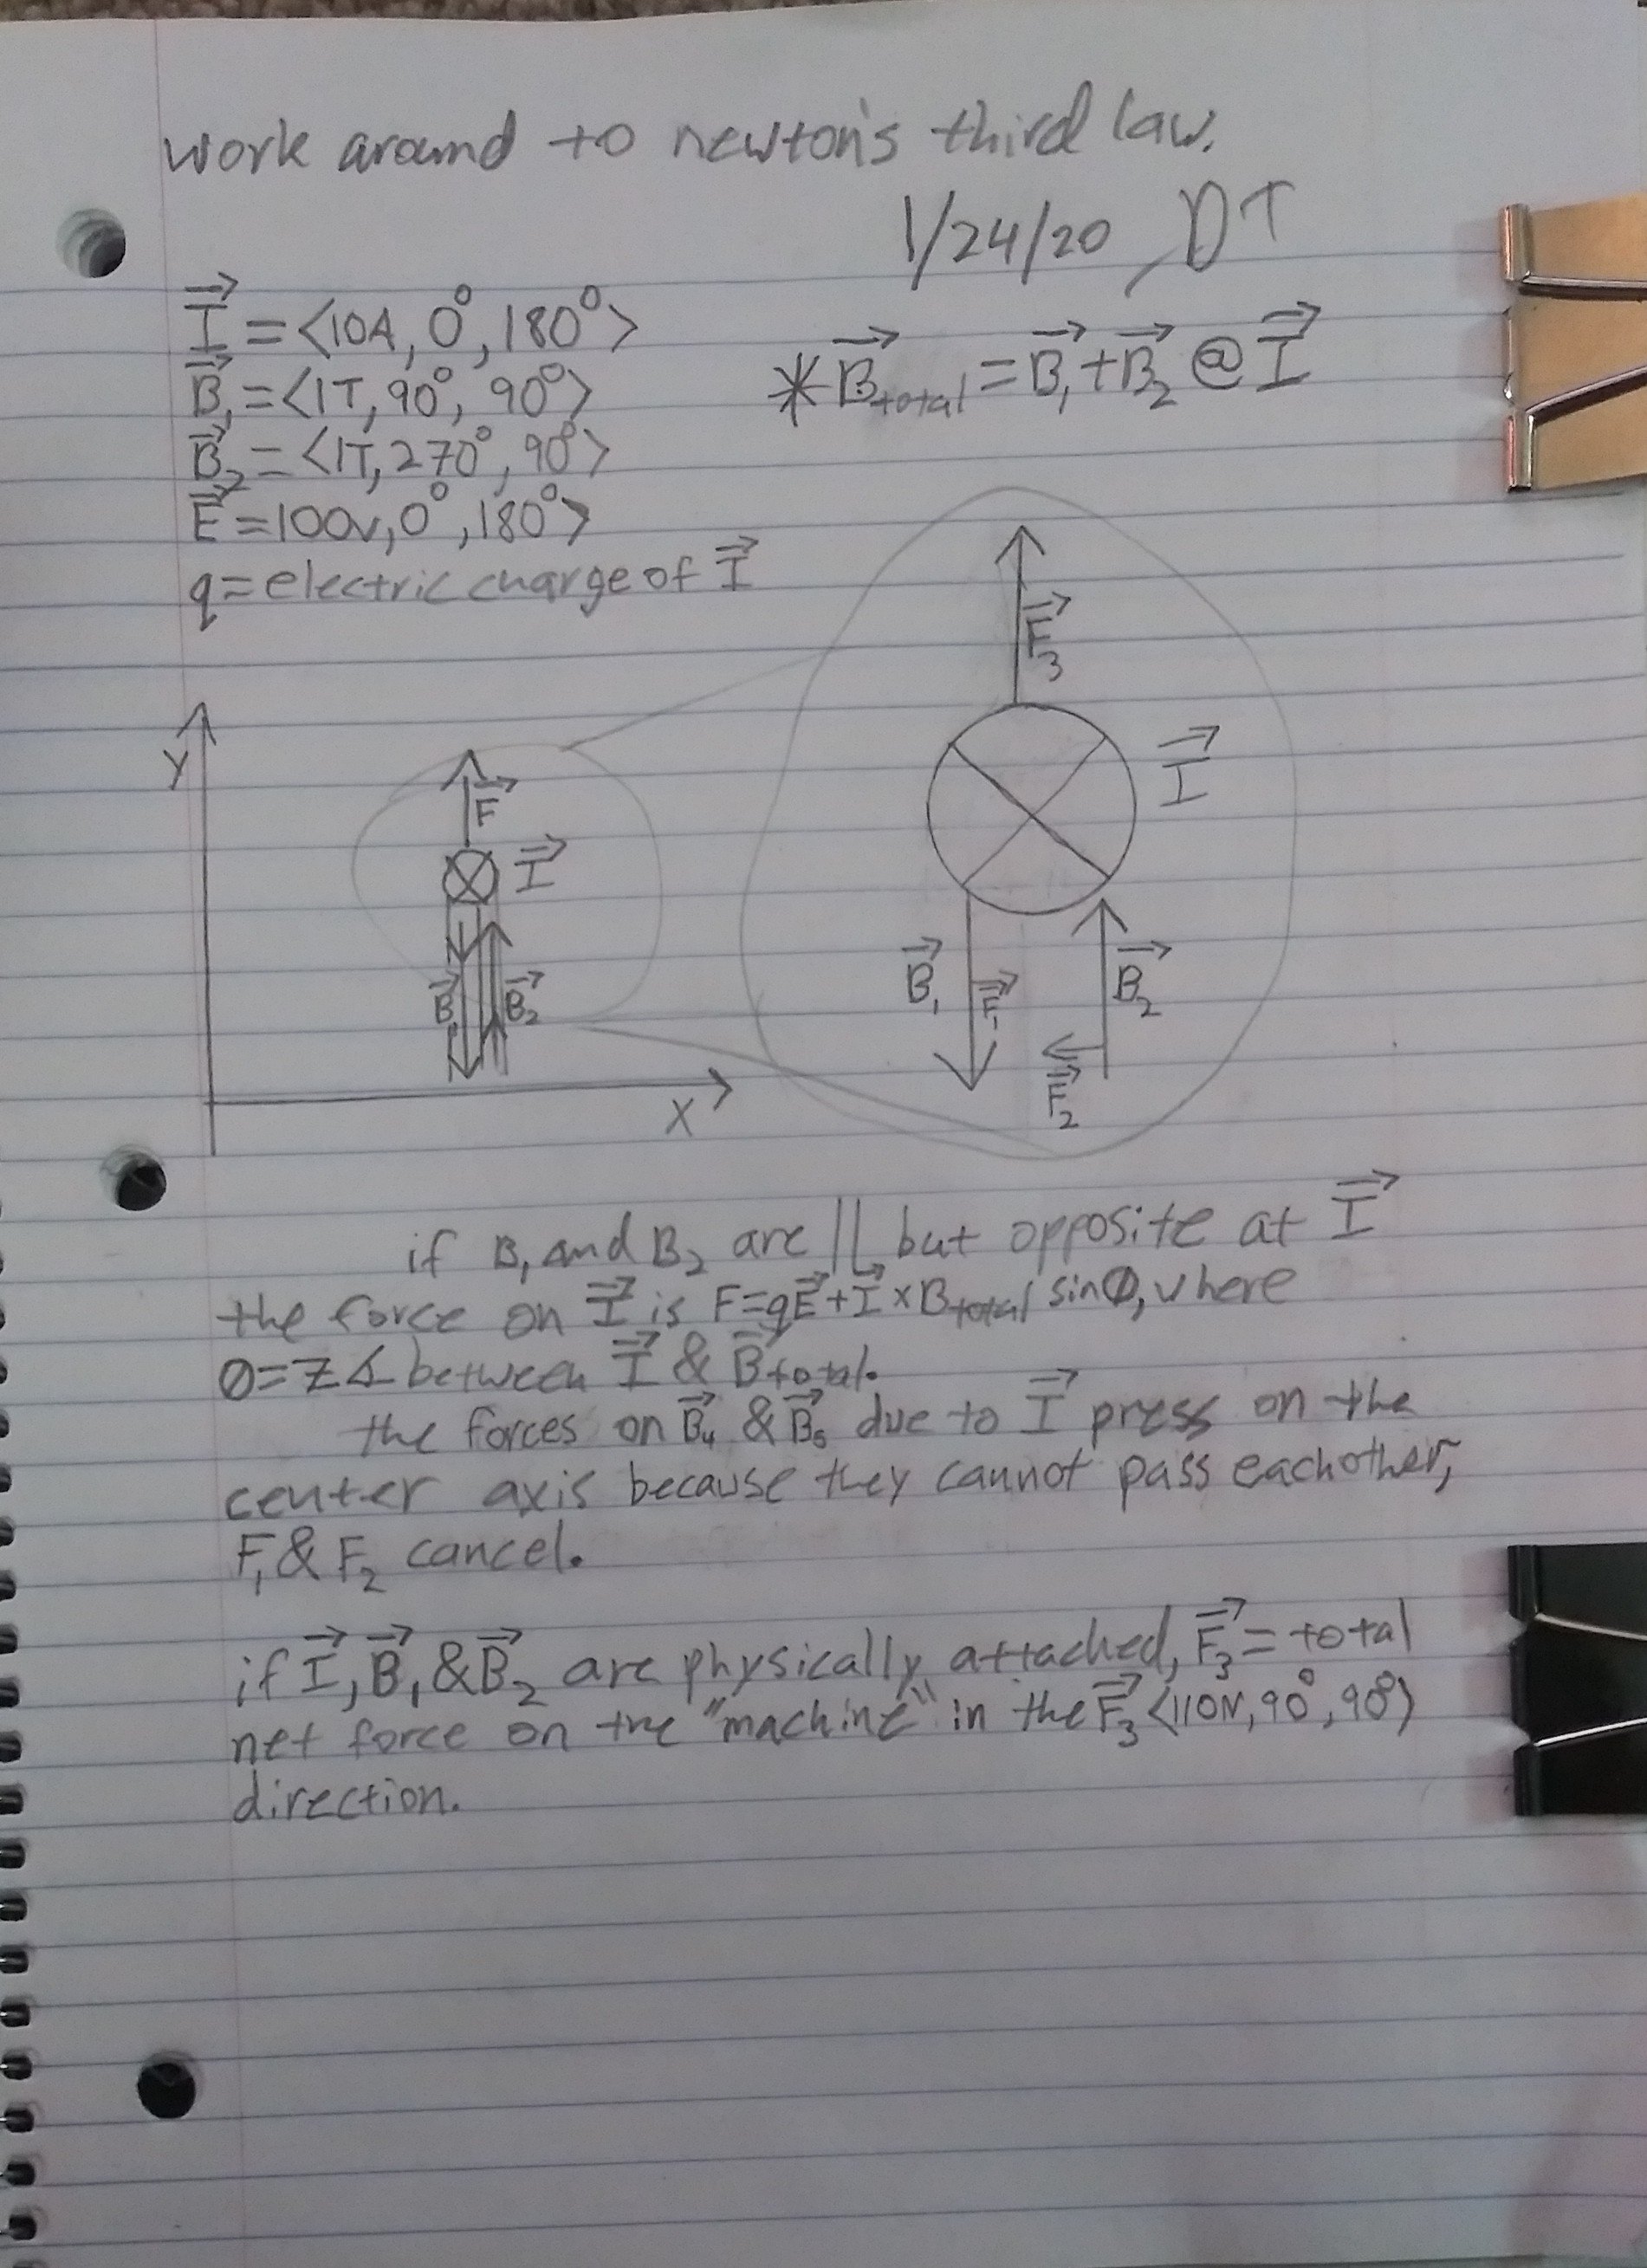 work around to newton's third law.
1/24/20, DT
I = <10A, 0°, 180°>
B₁ = <1T, 90°, 90°>
* B total = B₁ + B₂ @ I
B₂ = <1T, 270°, 90°>
E = 100v, 0°, 180°>
q = electric charge of I
Y
F
I
B₁
B₂
X
F₃
I
B₁
F₁
B₂
F₂
if B₁ and B₂ are || but opposite at I
the force on I is F=qE+I×Btotal sinØ, where
Ø=Z∡ between I & Btotal.
the forces on B₄ & B₅ due to I press on the
center axis because they cannot pass eachother,
F₁ & F₂ cancel.
if I, B₁ & B₂ are physically attached, F₃ = total
net force on the "machine" in the F₃ <110N, 90°, 90°>
direction.